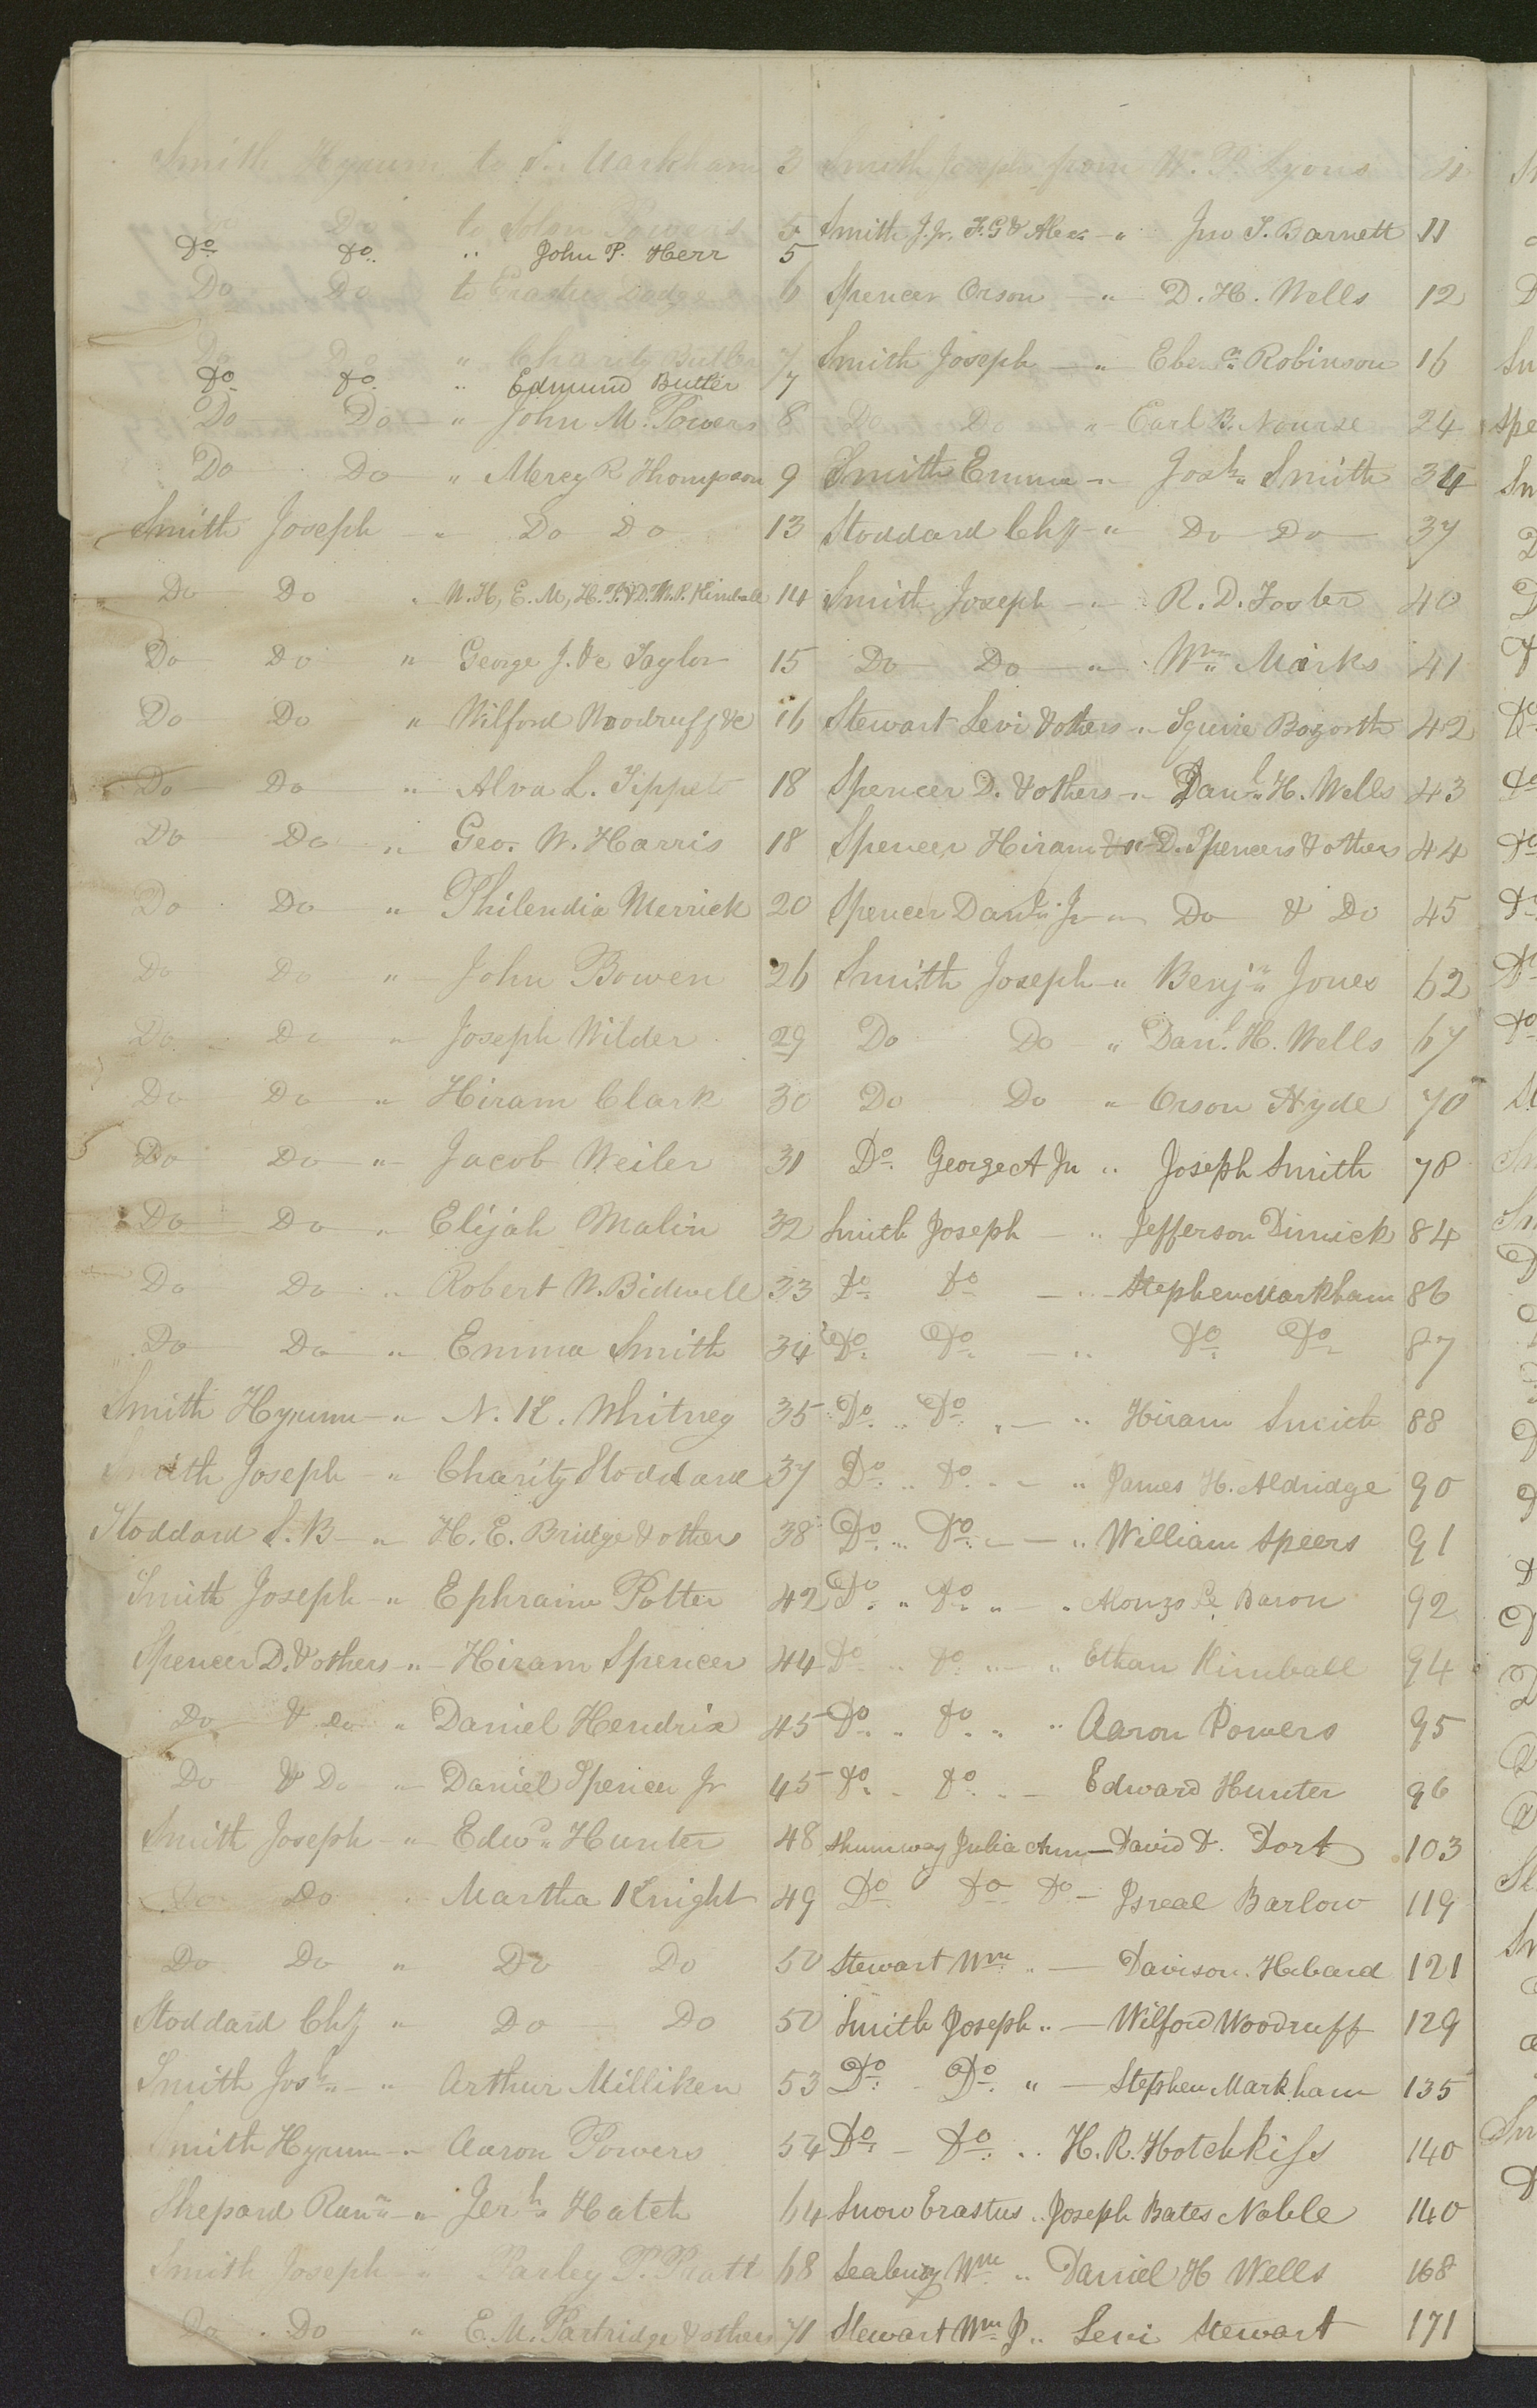 Smith Hyrum to S. Markham 3
Do to John Powers 5
Do Do " John P. Herr 5
Do Do to Erastus Dodge 6
Do Do " Charity Butler 7
Do Do " Edmund Butler 7
Do Do " John M. Powers 8
Do Do " Mercy R Thompson 9
Smith Joseph " Do Do 13
Do Do " W. H, E. M, H. P. & D. P. Kimball 14
Do Do " George J. &c Taylor 15
Do Do " Wilford Woodruff &c 16
Do Do " Alva L. Tippet 18
Do Do " Geo. W. Harris 18
Do Do " Philendia Merrick 20
Do Do " John Bowen 26
Do Do " Joseph Wilder 29
Do Do " Hiram Clark 30
Do Do " Jacob Weiler 31
Do Do " Elijah Malin 32
Do Do " Robert W. Bidwell 33
Do Do " Emma Smith 34
Smith Hyrum " N. K. Whitney 35
Smith Joseph " Charity Stoddard 37
Stoddard S. B " H. E. Bridge & others 38
Smith Joseph " Ephraim Potter 42
Spencer D. & others " Hiram Spencer 44
Do & Do " Daniel Hendrix 45
Do & Do " Daniel Spencer Jr 45
Smith Joseph " Edwd Hunter 48
Do Do " Martha Knight 49
Do Do " Do Do 50
Stoddard Chy " Do Do 50
Smith Josh " Arthur Milliken 53
Smith Hyrum " Aaron Powers 54
Shepard Rann " Jerh Hatch 64
Smith Joseph " Parley P. Pratt 68
Do Do " E. M. Partridge & others 71
Smith Joseph from W. P. Lyons 11
Smith J. Jr. F. G & Alexr " Jno S. Barnett 11
Spencer Orson " D. H. Wells 12
Smith Joseph " Ebenr Robinson 16
Do Do " Earl B. Nourse 24
Smith Emma " Josh Smith 34
Stoddard Chy " Do Do 37
Smith Joseph " R. D. Foster 40
Do Do " Wm Marks 41
Stewart Levi & others " Squire Bozorth 42
Spencer D. & others " Danl H. Wells 43
Spencer Hiram " D. Spencers & others 44
Spencer Danl Jr " Do & Do 45
Smith Joseph " Benjn Jones 62
Do Do " Danl H. Wells 67
Do Do " Orson Hyde 70
Do George A Jn " Joseph Smith 78
Smith Joseph " Jefferson Dimick 84
Do Do " Stephen Markham 86
Do Do " Do Do 87
Do Do " Hiram Smith 88
Do Do " James H. Aldridge 90
Do Do " William Speers 91
Do Do " Alonzo Le Baron 92
Do Do " Ethan Kimball 94
Do Do " Aaron Powers 95
Do Do " Edward Hunter 96
Shumway Julia Ann David D. Dort 103
Do Do Do Isreal Barlow 119
Stewart Wm " Davison Hebard 121
Smith Joseph " Wilford Woodruff 129
Do Do " Stephen Markham 135
Do Do " H. R. Hotchkiss 140
Snow Erastus " Joseph Bates Noble 140
Seabury Wm " Daniel H Wells 168
Stewart Wm J " Levi Stewart 171